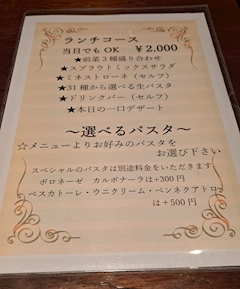 ランチコース
当日でもOK　¥2,000
★前菜3種盛り合わせ
★スプラウトミックスサラダ
★ミネストローネ（セルフ）
★31種から選べる生パスタ
★ドリンクバー（セルフ）
★本日の一口デザート
～選べるパスタ～
☆メニューよりお好みのパスタを
お選び下さい
スペシャルのパスタは別途料金をいただきます
ボロネーゼ　カルボナーラは+300円
ペスカトーレ・ウニクリーム・ペンネクアトロ
は+500円